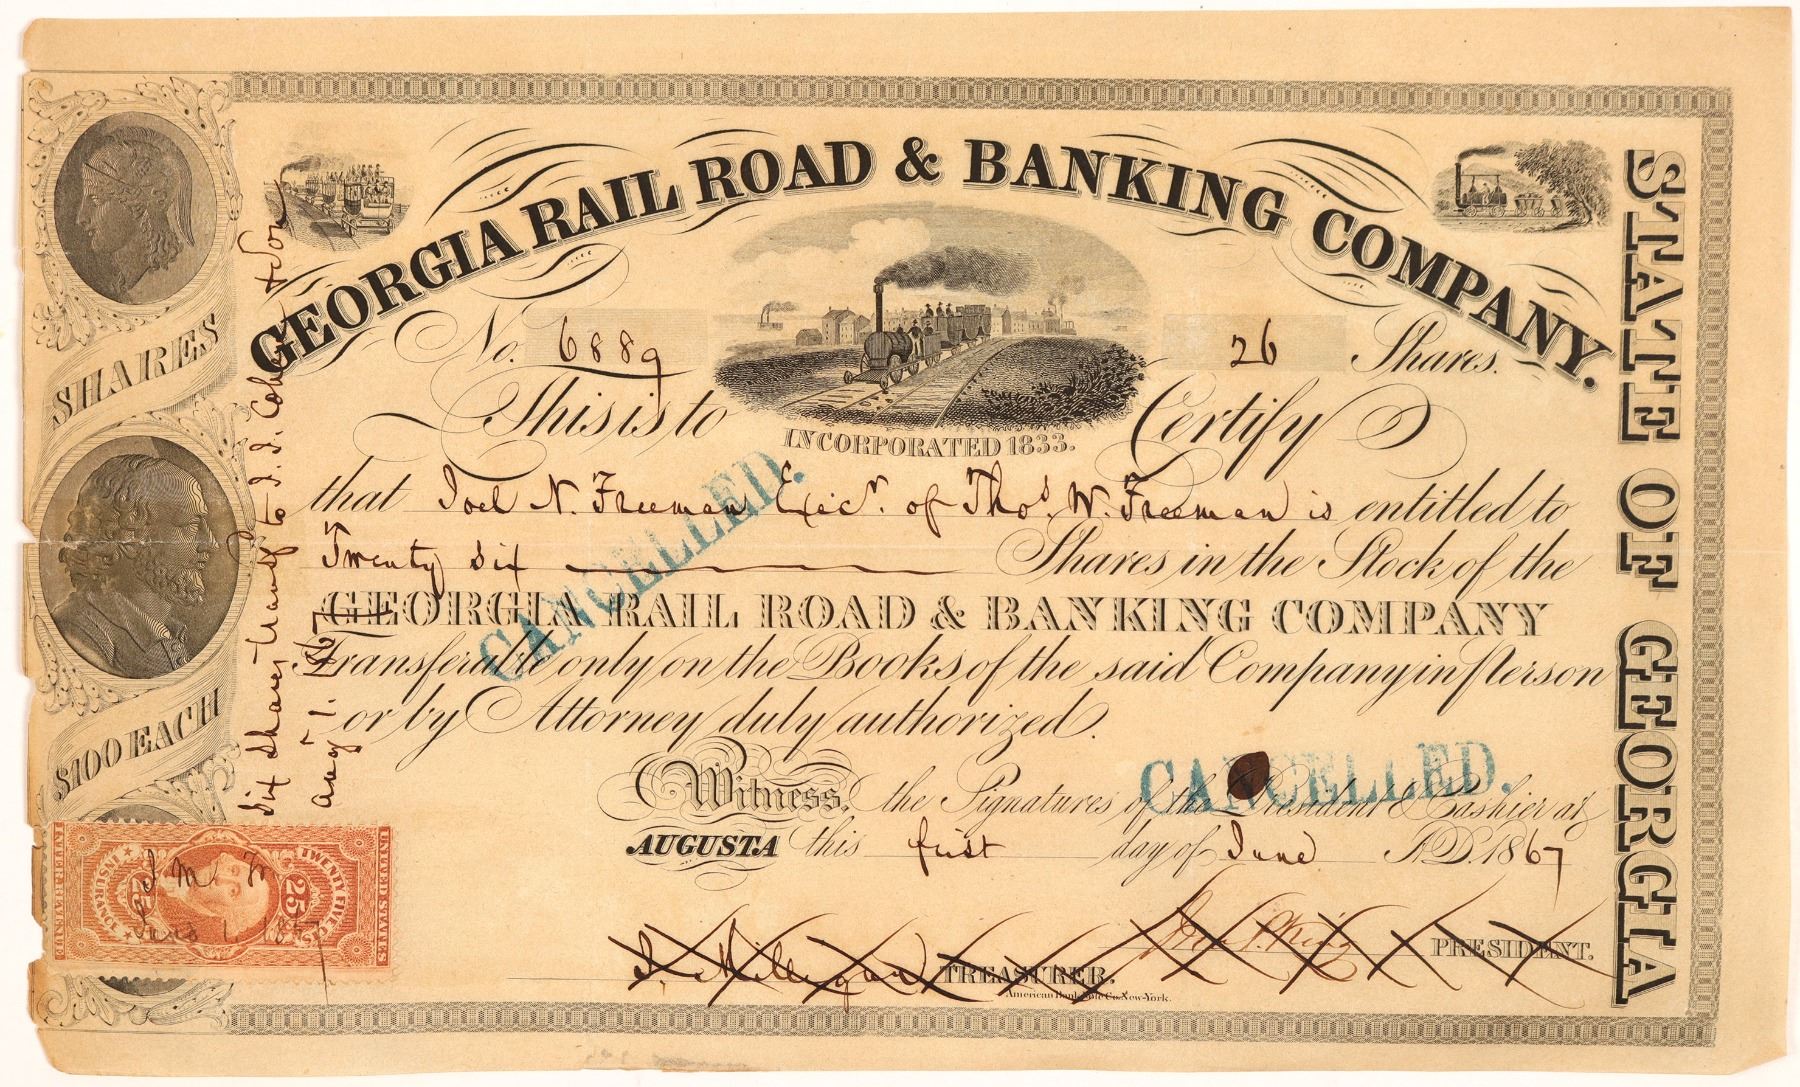 GEORGIA RAIL ROAD & BANKING COMPANY.
No. 6889
26 Shares.
This is to Certify
INCORPORATED 1833.
that Joel N. Freeman Exec.r of Tho.s W. Freeman is entitled to
Twenty Six Shares in the Stock of the
GEORGIA RAIL ROAD & BANKING COMPANY
Transferable only on the Books of the said Company in person
or by Attorney duly authorized.
Witness, the Signatures of the President & Cashier at
AUGUSTA this first day of June A.D. 1867
PRESIDENT.
J. Milligan TREASURER.
American Bank Note Co. New-York.
CANCELLED.
CANCELLED.
STATE OF GEORGIA
SHARES
$100 EACH
Six Shares Transf to J. J. Cohen & Son
Aug 1. 1867
UNITED STATES
TWENTY FIVE CTS.
25
25
INSURANCE
INTER. REVENUE
June 1, 1867